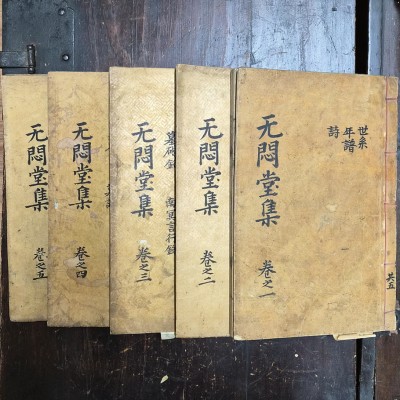 世系
年譜
詩
无悶堂集 卷之一
共五
无悶堂集 卷之二
南冥言行錄
无悶堂集 卷之三
无悶堂集 卷之四
无悶堂集 卷之五